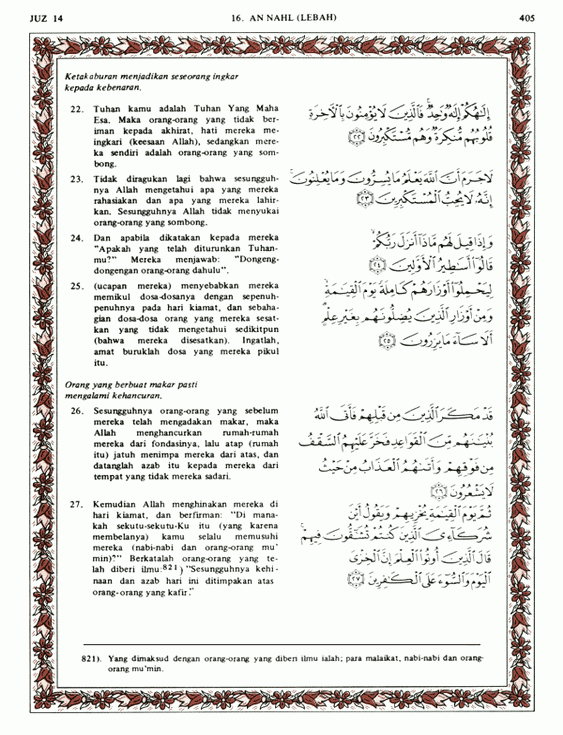 JUZ 14
16. AN NAHL (LEBAH)
405
Ketakaburan menjadikan seseorang ingkar
kepada kebenaran.
22. Tuhan kamu adalah Tuhan Yang Maha
Esa. Maka orang-orang yang tidak ber-
iman kepada akhirat, hati mereka me-
ingkari (keesaan Allah), sedangkan mere-
ka sendiri adalah orang-orang yang som-
bong.
إِلَٰهُكُمْ إِلَٰهٌ وَٰحِدٌ فَٱلَّذِينَ لَا يُؤْمِنُونَ بِٱلْأَخِرَةِ
قُلُوبُهُم مُّنكِرَةٌ وَهُم مُّسْتَكْبِرُونَ ﴿٢٢﴾
23. Tidak diragukan lagi bahwa sesungguh-
nya Allah mengetahui apa yang mereka
rahasiakan dan apa yang mereka lahir-
kan. Sesungguhnya Allah tidak menyukai
orang-orang yang sombong.
لَا جَرَمَ أَنَّ ٱللَّهَ يَعْلَمُ مَا يُسِرُّونَ وَمَا يُعْلِنُونَ
إِنَّهُۥ لَا يُحِبُّ ٱلْمُسْتَكْبِرِينَ ﴿٢٣﴾
24. Dan apabila dikatakan kepada mereka
"Apakah yang telah diturunkan Tuhan-
mu?" Mereka menjawab: "Dongeng-
dongengan orang-orang dahulu".
وَإِذَا قِيلَ لَهُم مَّاذَآ أَنزَلَ رَبُّكُمْ
قَالُوٓا۟ أَسَٰطِيرُ ٱلْأَوَّلِينَ ﴿٢٤﴾
25. (ucapan mereka) menyebabkan mereka
memikul dosa-dosanya dengan sepenuh-
penuhnya pada hari kiamat, dan sebaha-
gian dosa-dosa orang yang mereka sesat-
kan yang tidak mengetahui sedikitpun
(bahwa mereka disesatkan). Ingatlah,
amat buruklah dosa yang mereka pikul
itu.
لِيَحْمِلُوٓا۟ أَوْزَارَهُمْ كَامِلَةً يَوْمَ ٱلْقِيَٰمَةِ
وَمِنْ أَوْزَارِ ٱلَّذِينَ يُضِلُّونَهُم بِغَيْرِ عِلْمٍ
أَلَا سَآءَ مَا يَزِرُونَ ﴿٢٥﴾
Orang yang berbuat makar pasti
mengalami kehancuran.
26. Sesungguhnya orang-orang yang sebelum
mereka telah mengadakan makar, maka
Allah menghancurkan rumah-rumah
mereka dari fondasinya, lalu atap (rumah
itu) jatuh menimpa mereka dari atas, dan
datanglah azab itu kepada mereka dari
tempat yang tidak mereka sadari.
قَدْ مَكَرَ ٱلَّذِينَ مِن قَبْلِهِمْ فَأَتَى ٱللَّهُ
بُنْيَٰنَهُم مِّنَ ٱلْقَوَاعِدِ فَخَرَّ عَلَيْهِمُ ٱلسَّقْفُ
مِن فَوْقِهِمْ وَأَتَىٰهُمُ ٱلْعَذَابُ مِنْ حَيْثُ
لَا يَشْعُرُونَ ﴿٢٦﴾
27. Kemudian Allah menghinakan mereka di
hari kiamat, dan berfirman: "Di mana-
kah sekutu-sekutu-Ku itu (yang karena
membelanya) kamu selalu memusuhi
mereka (nabi-nabi dan orang-orang mu'
min)?" Berkatalah orang-orang yang te-
lah diberi ilmu:821) "Sesungguhnya kehi-
naan dan azab hari ini ditimpakan atas
orang-orang yang kafir."
ثُمَّ يَوْمَ ٱلْقِيَٰمَةِ يُخْزِيهِمْ وَيَقُولُ أَيْنَ
شُرَكَآءِىَ ٱلَّذِينَ كُنتُمْ تُشَٰٓقُّونَ فِيهِمْ
قَالَ ٱلَّذِينَ أُوتُوا۟ ٱلْعِلْمَ إِنَّ ٱلْخِزْىَ
ٱلْيَوْمَ وَٱلسُّوٓءَ عَلَى ٱلْكَٰفِرِينَ ﴿٢٧﴾
821). Yang dimaksud dengan orang-orang yang diberi ilmu ialah; para malaikat, nabi-nabi dan orang-
orang mu'min.